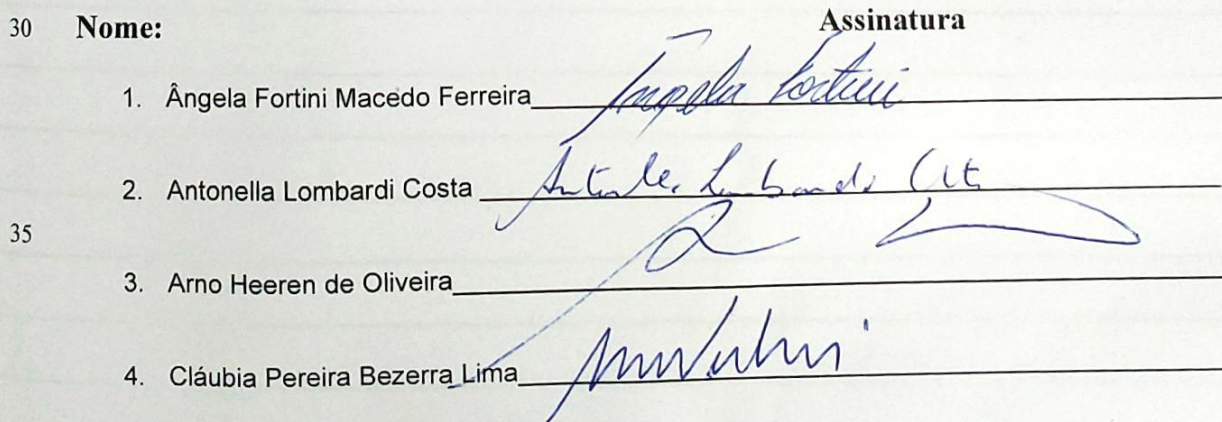 30 Nome: Assinatura
1. Ângela Fortini Macedo Ferreira Ângela Fortini
2. Antonella Lombardi Costa Antonella Lombardi Costa
35
3. Arno Heeren de Oliveira
4. Cláubia Pereira Bezerra Lima